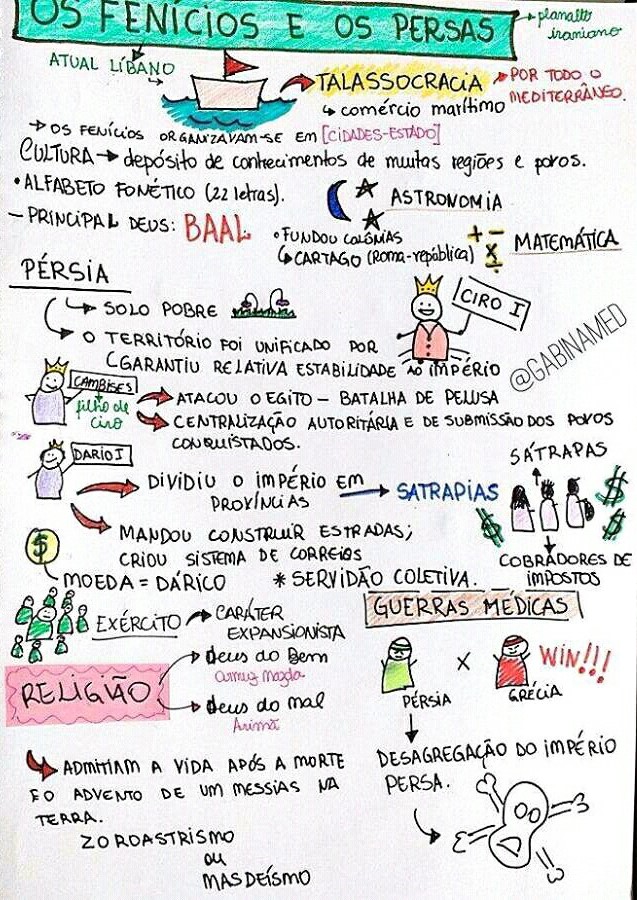 OS FENÍCIOS E OS PERSAS
planalto iraniano
ATUAL LÍBANO
TALASSOCRACIA
POR TODO O MEDITERRÂNEO.
comércio marítimo
OS FENÍCIOS ORGANIZAVAM-SE EM [CIDADES-ESTADO]
CULTURA → depósito de conhecimentos de muitas regiões e povos.
• ALFABETO FONÉTICO (22 letras).
ASTRONOMIA
– PRINCIPAL DEUS: BAAL
• FUNDOU COLÔNIAS
CARTAGO (Roma-república)
+ − × ÷
MATEMÁTICA
PÉRSIA
SOLO POBRE
CIRO I
O TERRITÓRIO FOI UNIFICADO POR
GARANTIU RELATIVA ESTABILIDADE AO IMPÉRIO
@GABINAMED
CAMBISES
filho de ciro
ATACOU O EGITO – BATALHA DE PELUSA
CENTRALIZAÇÃO AUTORITÁRIA E DE SUBMISSÃO DOS POVOS
CONQUISTADOS.
DARIO I
DIVIDIU O IMPÉRIO EM
PROVÍNCIAS
SATRAPIAS
SÁTRAPAS
$ $ $
COBRADORES DE
IMPOSTOS
MANDOU CONSTRUIR ESTRADAS;
CRIOU SISTEMA DE CORREIOS
$
MOEDA = DÁRICO
* SERVIDÃO COLETIVA.
EXÉRCITO → CARÁTER
EXPANSIONISTA
GUERRAS MÉDICAS
PÉRSIA
X
GRÉCIA
WIN!!!
DESAGREGAÇÃO DO IMPÉRIO
PERSA.
RELIGIÃO
Deus do Bem
Ormuz Mazda
Deus do mal
Arimã
ADMITIAM A VIDA APÓS A MORTE
E O ADVENTO DE UM MESSIAS NA
TERRA.
ZOROASTRISMO
ou
MASDEÍSMO